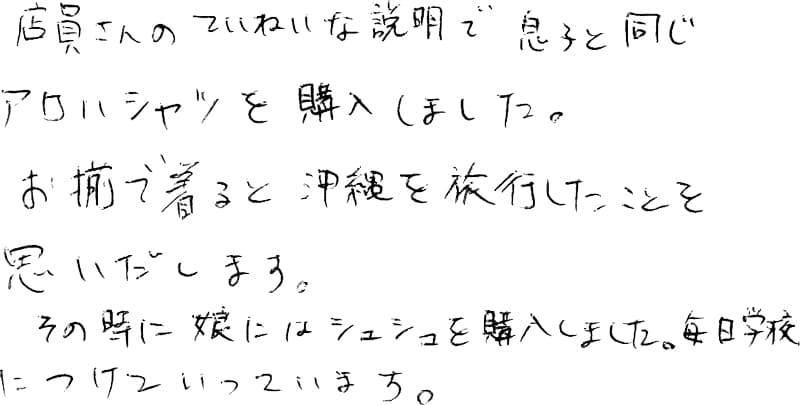 店員さんのていねいな説明で息子と同じ
アロハシャツを購入しました。
お揃で着ると沖縄を旅行したことを
思いだします。
その時に娘にはシュシュを購入しました。毎日学校
につけていっています。